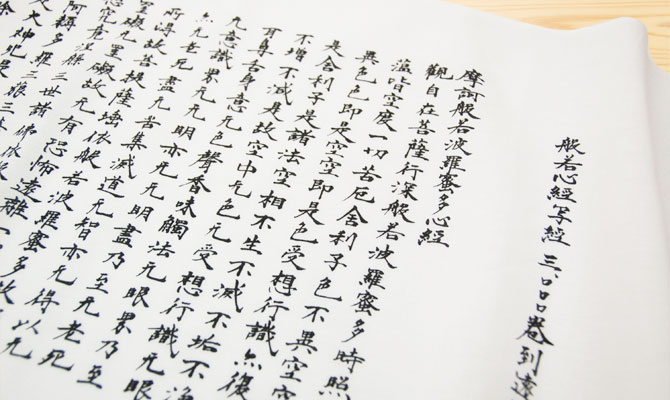 般若心經写經 三、〇〇〇巻到達
摩訶般若波羅蜜多心經
觀自在菩薩行深般若波羅蜜多時照
蘊皆空度一切苦厄舍利子色不異空空
異色色即是空空即是色受想行識亦復
是舍利子是諸法空相不生不滅不垢不淨
不增不減是故空中无色无受想行識无眼
耳鼻舌身意无色聲香味觸法无眼界乃至
无意識界无无明亦无无明盡乃至无老死
无老死盡无苦集滅道无智亦无得以无
所得故菩提薩埵依般若波羅蜜多故
罣礙无罣礙故无有恐怖遠離一
究竟涅槃三世諸佛依
阿耨多羅三藐三
大神呪是